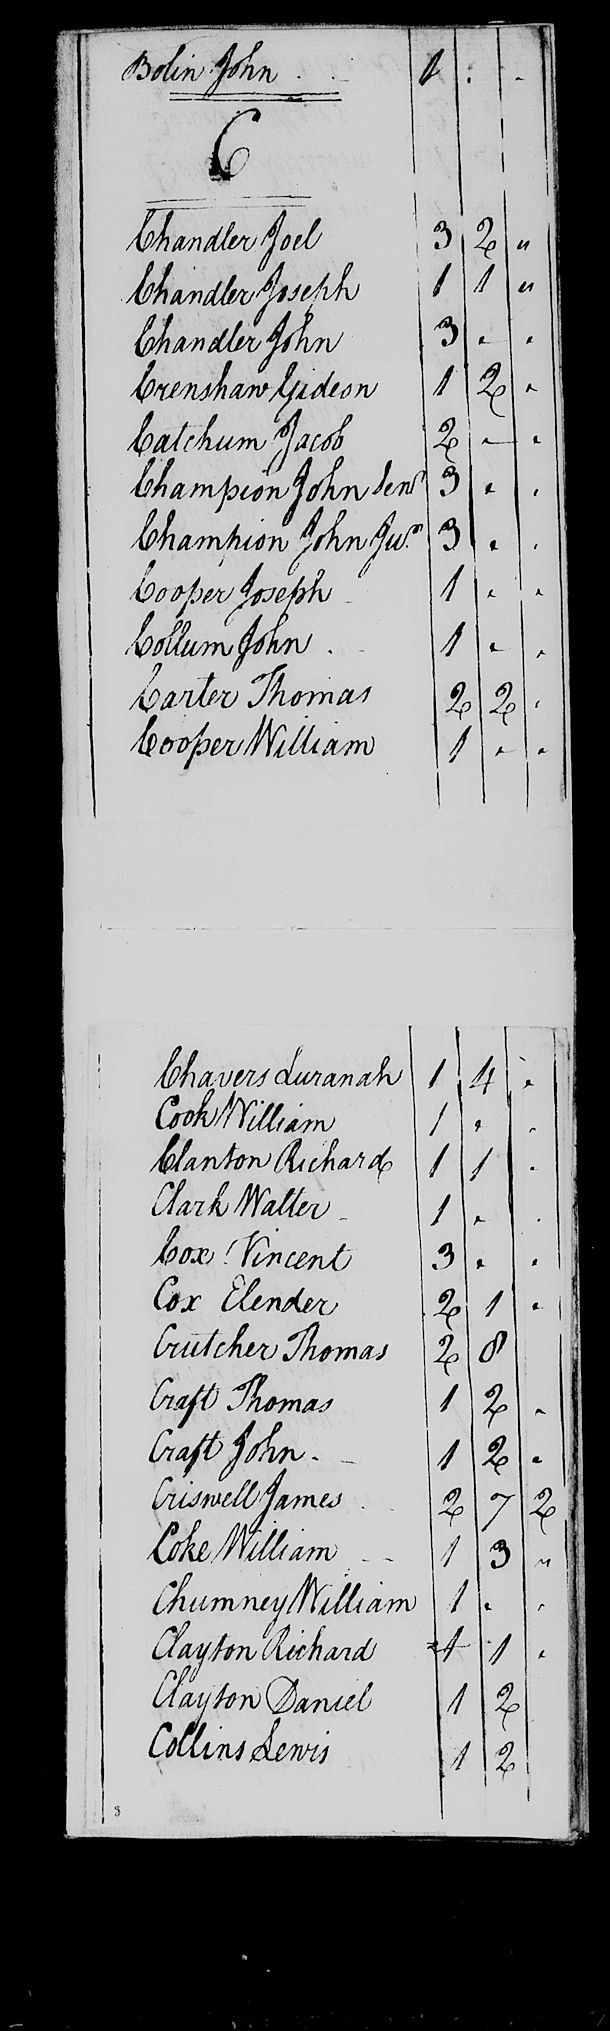 Bolin John . . 1 . .
C
Chandler Joel 3 2 "
Chandler Joseph 1 1 "
Chandler John 3 . .
Crenshaw Gideon 1 2 .
Catchum Jacob 2 . .
Champion John Senr 3 . .
Champion John Jur. 3 . .
Cooper Joseph 1 . .
Collum John . 1 . .
Carter Thomas 2 2 .
Cooper William 1 . .
Chavers Luranah 1 4 .
Cook William 1 . .
Clanton Richard 1 1 .
Clark Walter 1 . .
Cox Vincent 3 . .
Cox Elender 2 1 .
Crutcher Thomas 2 8
Craft Thomas 1 2 .
Craft John . 1 2 .
Criswell James 2 7 2
Coke William 1 3 "
Chumney William 1 . .
Clayton Richard 1 1 .
Clayton Daniel 1 2
Collins Lewis 1 2